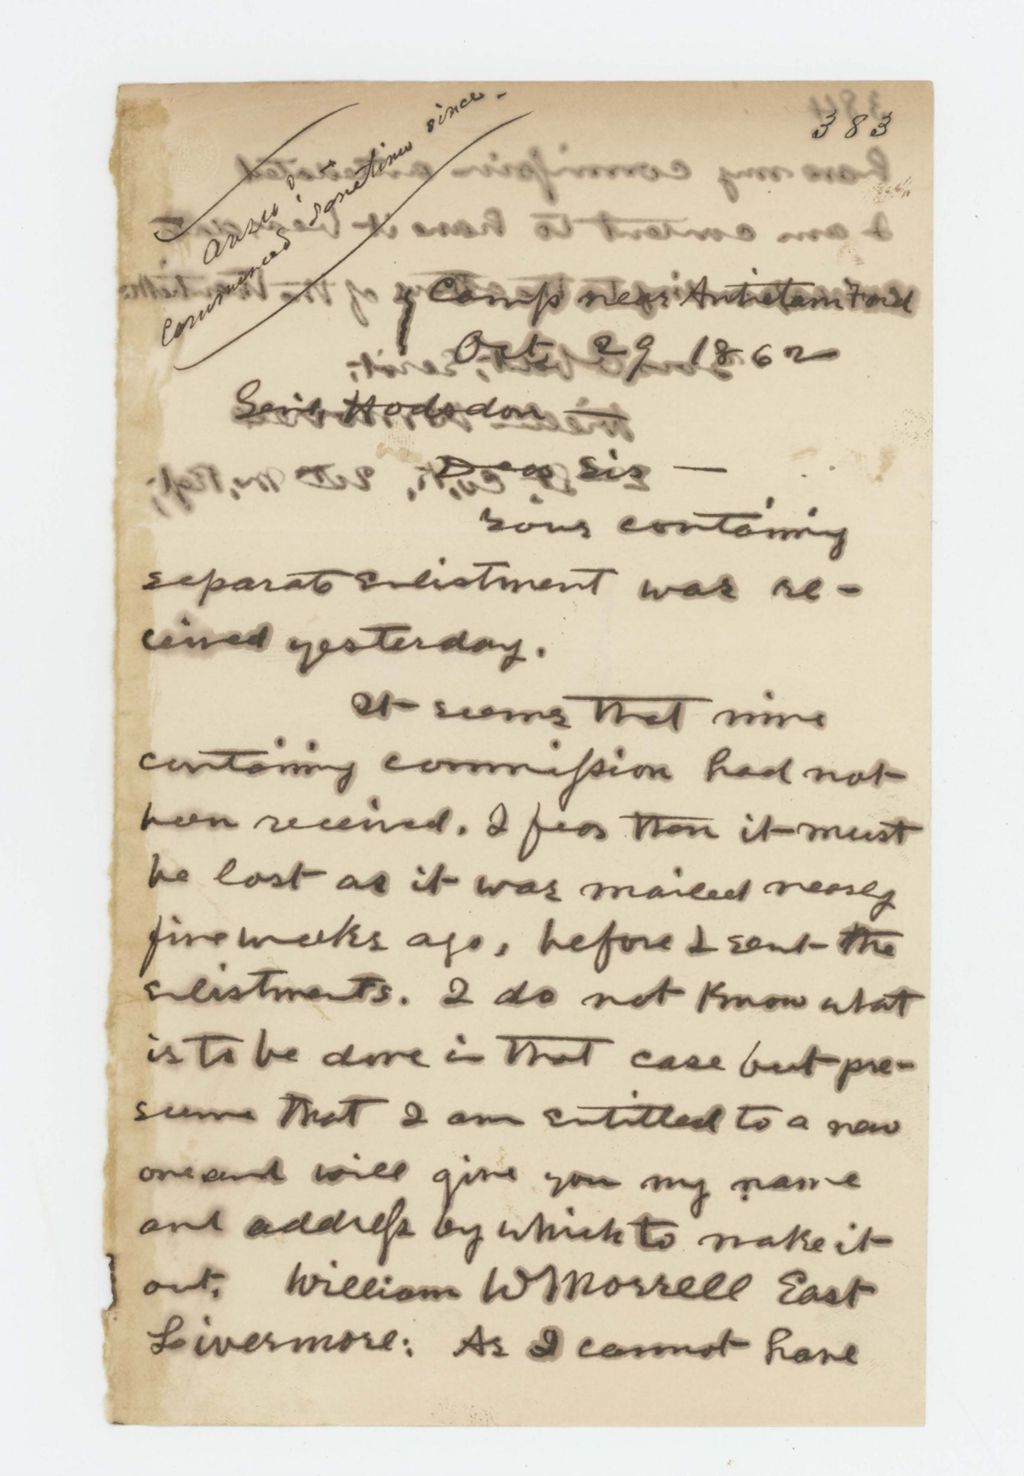 383
commenced sometime since -
Camp near Antietam Ford
Oct 29 1862
Genl Hodsdon
Dear Sir —
Yours containing
separate enlistment was re-
ceived yesterday.
It seems that mine
containing commission had not
been received. I fear then it must
be lost as it was mailed nearly
five weeks ago, before I sent the
enlistments. I do not know what
is to be done in that case but pre-
sume that I am entitled to a new
one and will give you my name
and address by which to make it
out. William W Morrell East
Livermore: As I cannot have